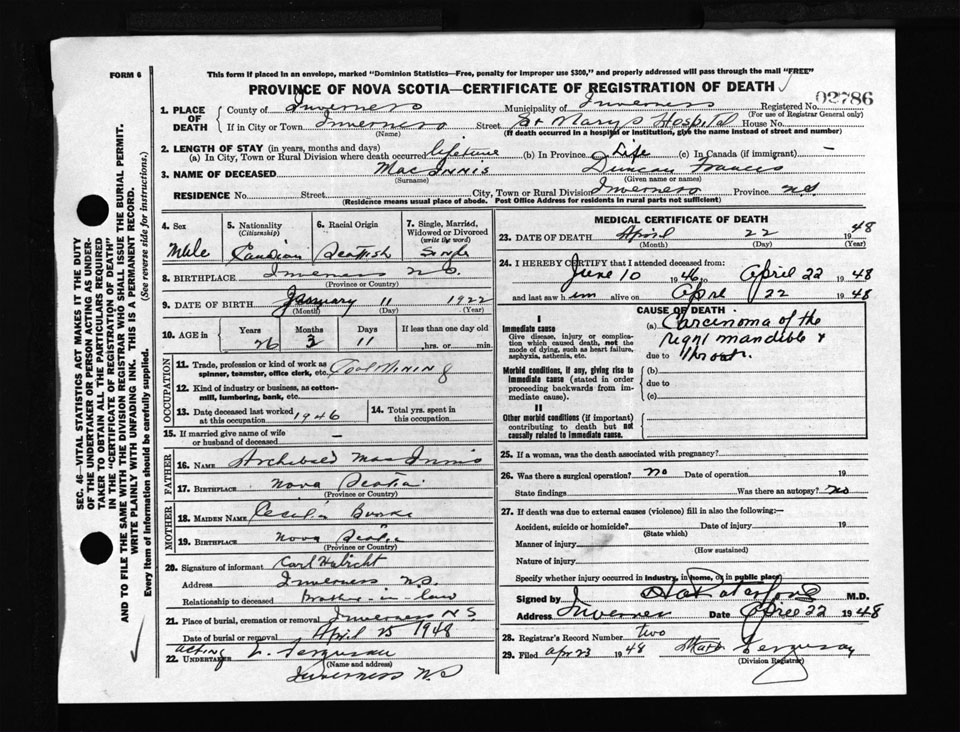 FORM 6
This form if placed in an envelope, marked "Dominion Statistics—Free, penalty for improper use $300," and properly addressed will pass through the mail "FREE"
PROVINCE OF NOVA SCOTIA—CERTIFICATE OF REGISTRATION OF DEATH
02786
1. PLACE OF DEATH { County of Inverness Municipality of Inverness Registered No.
(For use of Registrar General only)
If in City or Town Inverness Street St Marys Hospital House No.
(Name) (If death occurred in a hospital or institution, give the name instead of street and number)
2. LENGTH OF STAY (in years, months and days)
(a) In City, Town or Rural Division where death occurred lifetime (b) In Province Life (c) In Canada (if immigrant) —
3. NAME OF DECEASED MacInnis Duncan Francis
(Surname) (Given name or names)
RESIDENCE No. Street City, Town or Rural Division Inverness Province N.S.
(Residence means usual place of abode. Post Office Address for residents in rural parts not sufficient)
4. Sex 5. Nationality (Citizenship) 6. Racial Origin 7. Single, Married, Widowed or Divorced (write the word)
Male Canadian Scottish Single
8. BIRTHPLACE Inverness N.S.
(Province or Country)
9. DATE OF BIRTH January 11 1922
(Month) (Day) (Year)
10. AGE in { Years Months Days If less than one day old
26 3 11 hrs. or min.
OCCUPATION
11. Trade, profession or kind of work as spinner, teamster, office clerk, etc. Coal Mining
12. Kind of industry or business, as cotton-mill, lumbering, bank, etc.
13. Date deceased last worked at this occupation 1946 14. Total yrs. spent in this occupation
15. If married give name of wife or husband of deceased —
FATHER
16. NAME Archibald MacInnis
17. BIRTHPLACE Nova Scotia
(Province or Country)
MOTHER
18. MAIDEN NAME Cecilia Burke
19. BIRTHPLACE Nova Scotia
(Province or Country)
20. Signature of informant Carl
Address Inverness N.S.
Relationship to deceased Brother-in-law
21. Place of burial, cremation or removal Inverness N.S.
Date of burial or removal April 25 1948
acting
22. UNDERTAKER L. Ferguson
(Name and address)
Inverness N.S.
MEDICAL CERTIFICATE OF DEATH
23. DATE OF DEATH April 22 1948
(Month) (Day) (Year)
24. I HEREBY CERTIFY that I attended deceased from:
June 10 1946 to April 22 1948
and last saw him alive on April 22 1948
CAUSE OF DEATH
I
Immediate cause
Give disease, injury or complication which caused death, not the mode of dying, such as heart failure, asphyxia, asthenia, etc.
(a) Carcinoma of the
right mandible &
due to throat.
Morbid conditions, if any, giving rise to immediate cause (stated in order proceeding backwards from immediate cause).
(b)
due to
(c)
II
Other morbid conditions (if important) contributing to death but not causally related to immediate cause.
25. If a woman, was the death associated with pregnancy?
26. Was there a surgical operation? no Date of operation 19
State findings Was there an autopsy? no
27. If death was due to external causes (violence) fill in also the following:—
Accident, suicide or homicide? Date of injury 19
(State which)
Manner of injury
(How sustained)
Nature of injury
Specify whether injury occurred in industry, in home, or in public place
Signed by M.D.
Address Inverness Date April 22 1948
28. Registrar's Record Number two
29. Filed Apr 23 1948 Ferguson
(Division Registrar)
SEC. 46—VITAL STATISTICS ACT MAKES IT THE DUTY
OF THE UNDERTAKER OR PERSON ACTING AS UNDER-
TAKER TO OBTAIN ALL THE PARTICULARS REQUIRED
IN THE "CERTIFICATE OF REGISTRATION OF DEATH"
AND TO FILE THE SAME WITH THE DIVISION REGISTRAR WHO SHALL ISSUE THE BURIAL PERMIT.
WRITE PLAINLY WITH UNFADING INK. THIS IS A PERMANENT RECORD.
Every item of information should be carefully supplied. (See reverse side for instructions.)